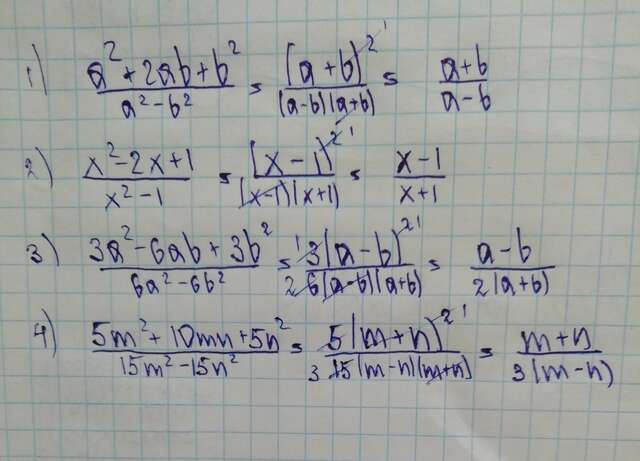 1) (a² + 2ab + b²)/(a² - b²) = (a + b)²¹/((a-b)(a+b)) = (a+b)/(a-b)
2) (x² - 2x + 1)/(x² - 1) = (x - 1)²¹/((x-1)(x+1)) = (x-1)/(x+1)
3) (3a² - 6ab + 3b²)/(6a² - 6b²) = ¹3(a - b)²¹/(2 6(a-b)(a+b)) = (a-b)/(2(a+b))
4) (5m² + 10mn + 5n²)/(15m² - 15n²) = 5(m+n)²¹/(3 15(m-n)(m+n)) = (m+n)/(3(m-n))